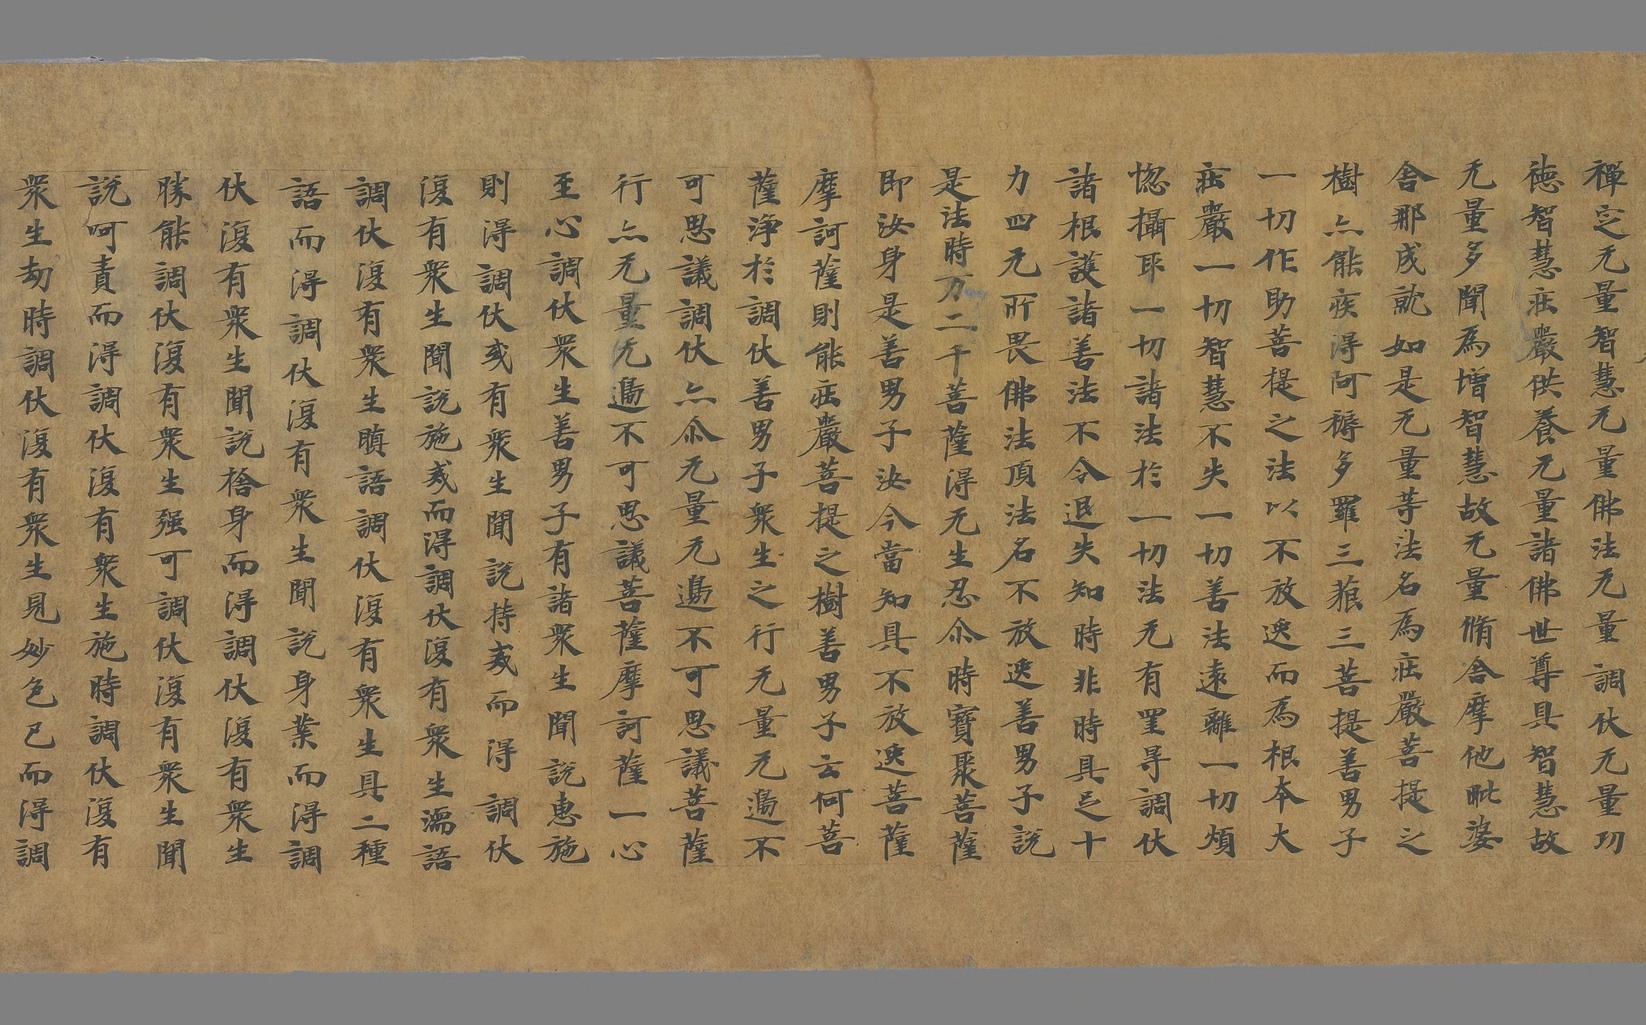 禪定无量智慧无量佛法无量調伏无量功
徳智慧疘嚴供養无量諸佛世尊具智慧故
无量多聞為增智慧故无量脩舍摩他毗婆
舍那成就如是无量等法名為疘嚴菩提之
樹亦能疾得阿耨多羅三藐三菩提善男子
一切作助菩提之法以不放逸而為根本大
疘嚴一切智慧不失一切善法遠離一切煩
惚攝取一切諸法於一切法无有罣㝵調伏
諸根護諸善法不令退失知時非時具足十
力四无所畏佛法頂法名不放逸善男子說
是法時万二千菩薩得无生忍尒時寶聚菩薩
即汝身是善男子汝今當知具不放逸菩薩
摩訶薩則能疘嚴菩提之樹善男子云何菩
薩淨於調伏善男子衆生之行无量无邊不
可思議調伏亦尒无量无邊不可思議菩薩
行亦无量无邊不可思議菩薩摩訶薩一心
至心調伏衆生善男子有諸衆生聞說惠施
則得調伏或有衆生聞說持戒而得調伏
復有衆生聞說施戒而得調伏復有衆生濡語
調伏復有衆生瞋語調伏復有衆生具二種
語而得調伏復有衆生聞說身業而得調
伏復有衆生聞說捨身而得調伏復有衆生
勝能調伏復有衆生强可調伏復有衆生聞
說呵責而得調伏復有衆生施時調伏復有
衆生劫時調伏復有衆生見妙色已而得調